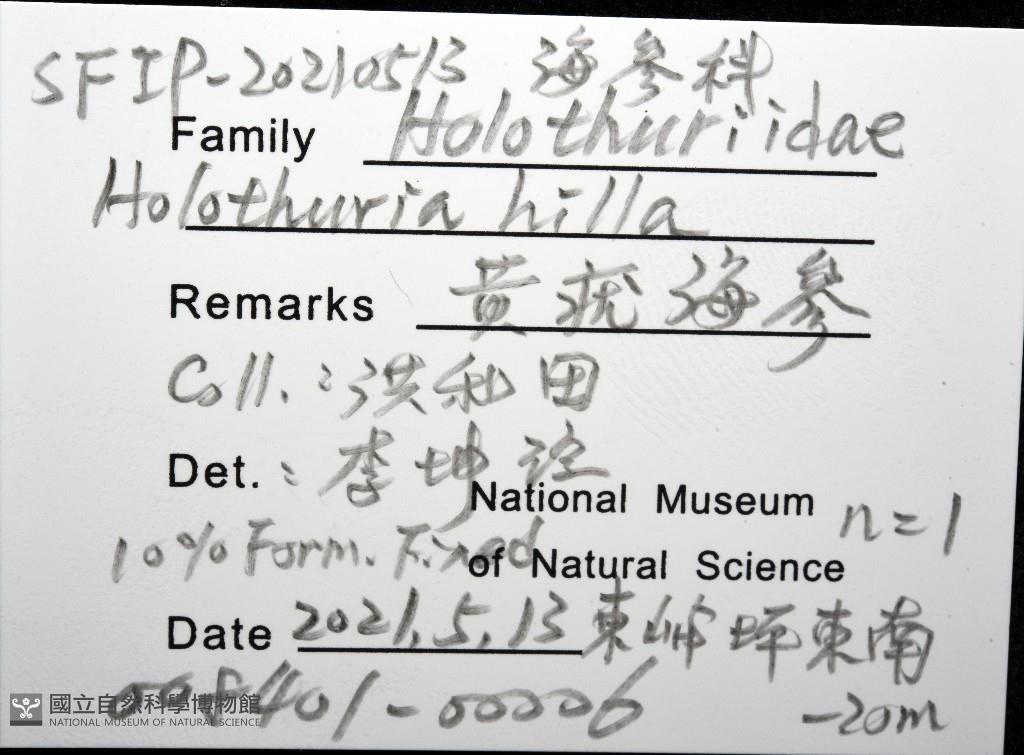 SFIP-20210513 海參科
Family Holothuriidae
Holothuria hilla
Remarks 黃疣海參
Coll.:洪和田
Det.:李坤瑄
National Museum n=1
10% Form. Fixed of Natural Science
Date 2021.5.13 東嶼坪東南
-20m
國立自然科學博物館
NATIONAL MUSEUM OF NATURAL SCIENCE